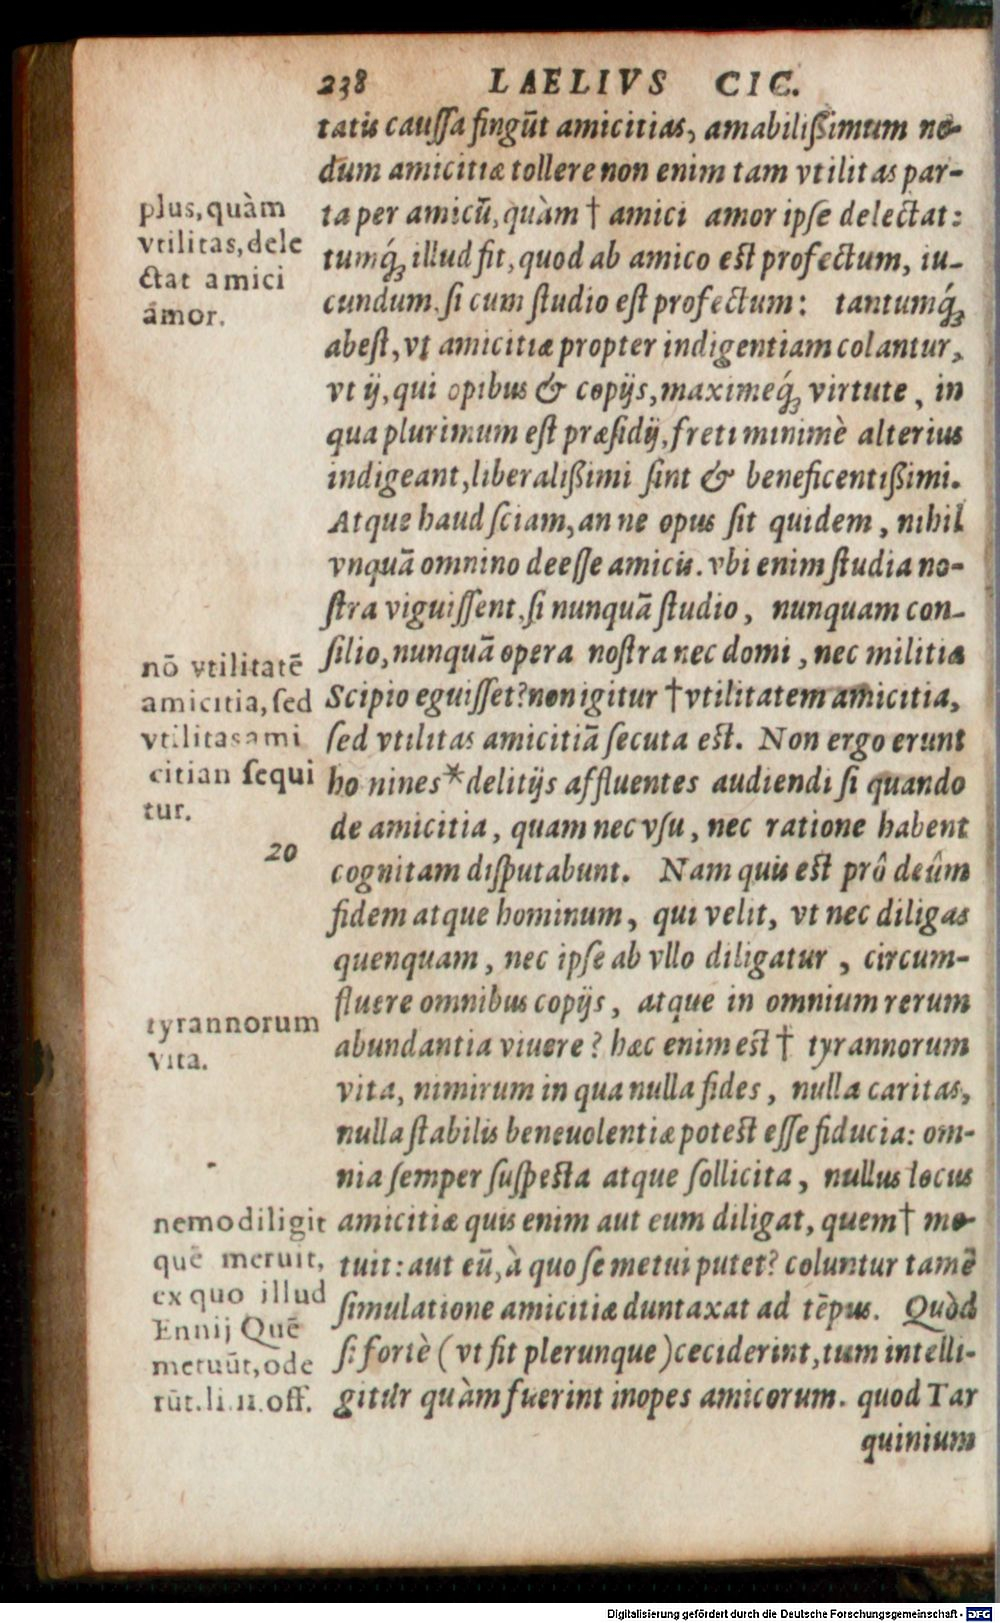 238 LAELIVS CIC.
tatis cauſſa fingūt amicitias, amabiliſſimum no-
dum amicitiæ tollere non enim tam vtilitas par-
ta per amicū, quàm † amici amor ipſe delectat:
tumq́ꝫ illud fit, quod ab amico eſt profectum, iu-
cundum, ſi cum ſtudio eſt profectum: tantumq́ꝫ
abeſt, vt amicitiæ propter indigentiam colantur,
vt ij, qui opibus & copijs, maximeq́ꝫ virtute, in
qua plurimum eſt præſidij, freti minimè alterius
indigeant, liberaliſſimi ſint & beneficentiſſimi.
Atque haud ſciam, an ne opus ſit quidem, nihil
vnquā omnino deeſſe amicis. vbi enim ſtudia no-
ſtra viguiſſent, ſi nunquā ſtudio, nunquam con-
ſilio, nunquā opera noſtra nec domi, nec militia
Scipio eguiſſet? non igitur † vtilitatem amicitia,
ſed vtilitas amicitiā ſecuta eſt. Non ergo erunt
ho nines * delitijs affluentes audiendi ſi quando
de amicitia, quam nec vſu, nec ratione habent
cognitam diſputabunt. Nam quis eſt prô deûm
fidem atque hominum, qui velit, vt nec diligas
quenquam, nec ipſe ab vllo diligatur, circum-
fluere omnibus copijs, atque in omnium rerum
abundantia viuere? hæc enim eſt † tyrannorum
vita, nimirum in qua nulla fides, nulla caritas,
nulla ſtabilis beneuolentiæ poteſt eſſe fiducia: om-
nia ſemper ſuſpecta atque ſollicita, nullus locus
amicitiæ quis enim aut eum diligat, quem † me-
tuit: aut eū, à quo ſe metui putet? coluntur tamē
ſimulatione amicitiæ duntaxat ad tēpus. Quòd
ſi fortè (vt fit plerunque) ceciderint, tum intelli-
gitur quàm fuerint inopes amicorum. quod Tar
quinium
plus, quàm
vtilitas, dele
ctat amici
amor.
nō vtilitatē
amicitia, ſed
vtilitas ami
citian ſequi
tur.
20
tyrannorum
vita.
nemo diligit
quē meruit,
ex quo illud
Ennij Quē
metuūt, ode
rūt. li. 11. off.
Digitalisierung gefördert durch die Deutsche Forschungsgemeinschaft - DFG